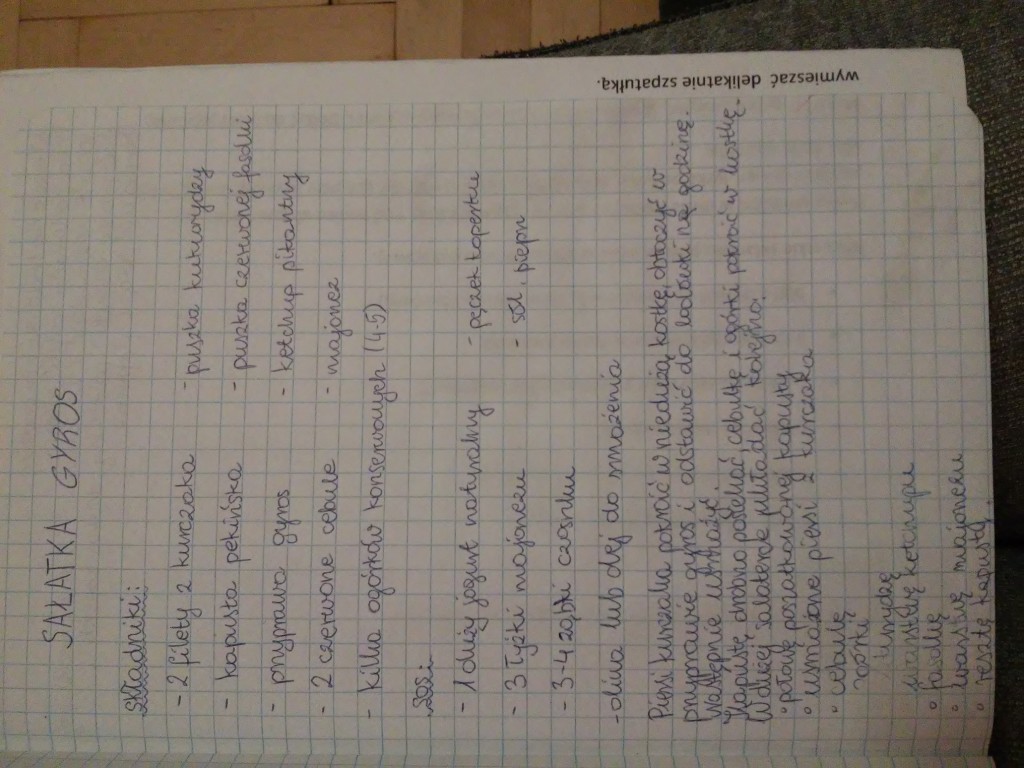 SAŁATKA GYROS
Składniki:
- 2 filety z kurczaka - puszka kukurydzy
- kapusta pekińska - puszka czerwonej fasolki
- przyprawa gyros - ketchup pikantny
- 2 czerwone cebule - majonez
- kilka ogórków konserwowych (4-5)
Sos:
- 1 duży jogurt naturalny - pęczek koperku
- 3 łyżki majonezu - sól, pieprz
- 3-4 ząbki czosnku
- oliwa lub olej do smażenia
Piersi kurczaka pokroić w niedużą kostkę, obtoczyć w
przyprawie gyros i odstawić do lodówki na godzinę.
Następnie usmażyć.
Kapustę drobno posiekać, cebulkę i ogórki pokroić w kostkę.
W dużej salaterce układać kolejno:
° połowę poszatkowanej kapusty
° usmażone piersi z kurczaka
° cebulę
° ogórki
kukurydzę
warstwę ketchupu
° fasolkę
° warstwę majonezu
° resztę kapusty.
wymieszać delikatnie szpatułką.